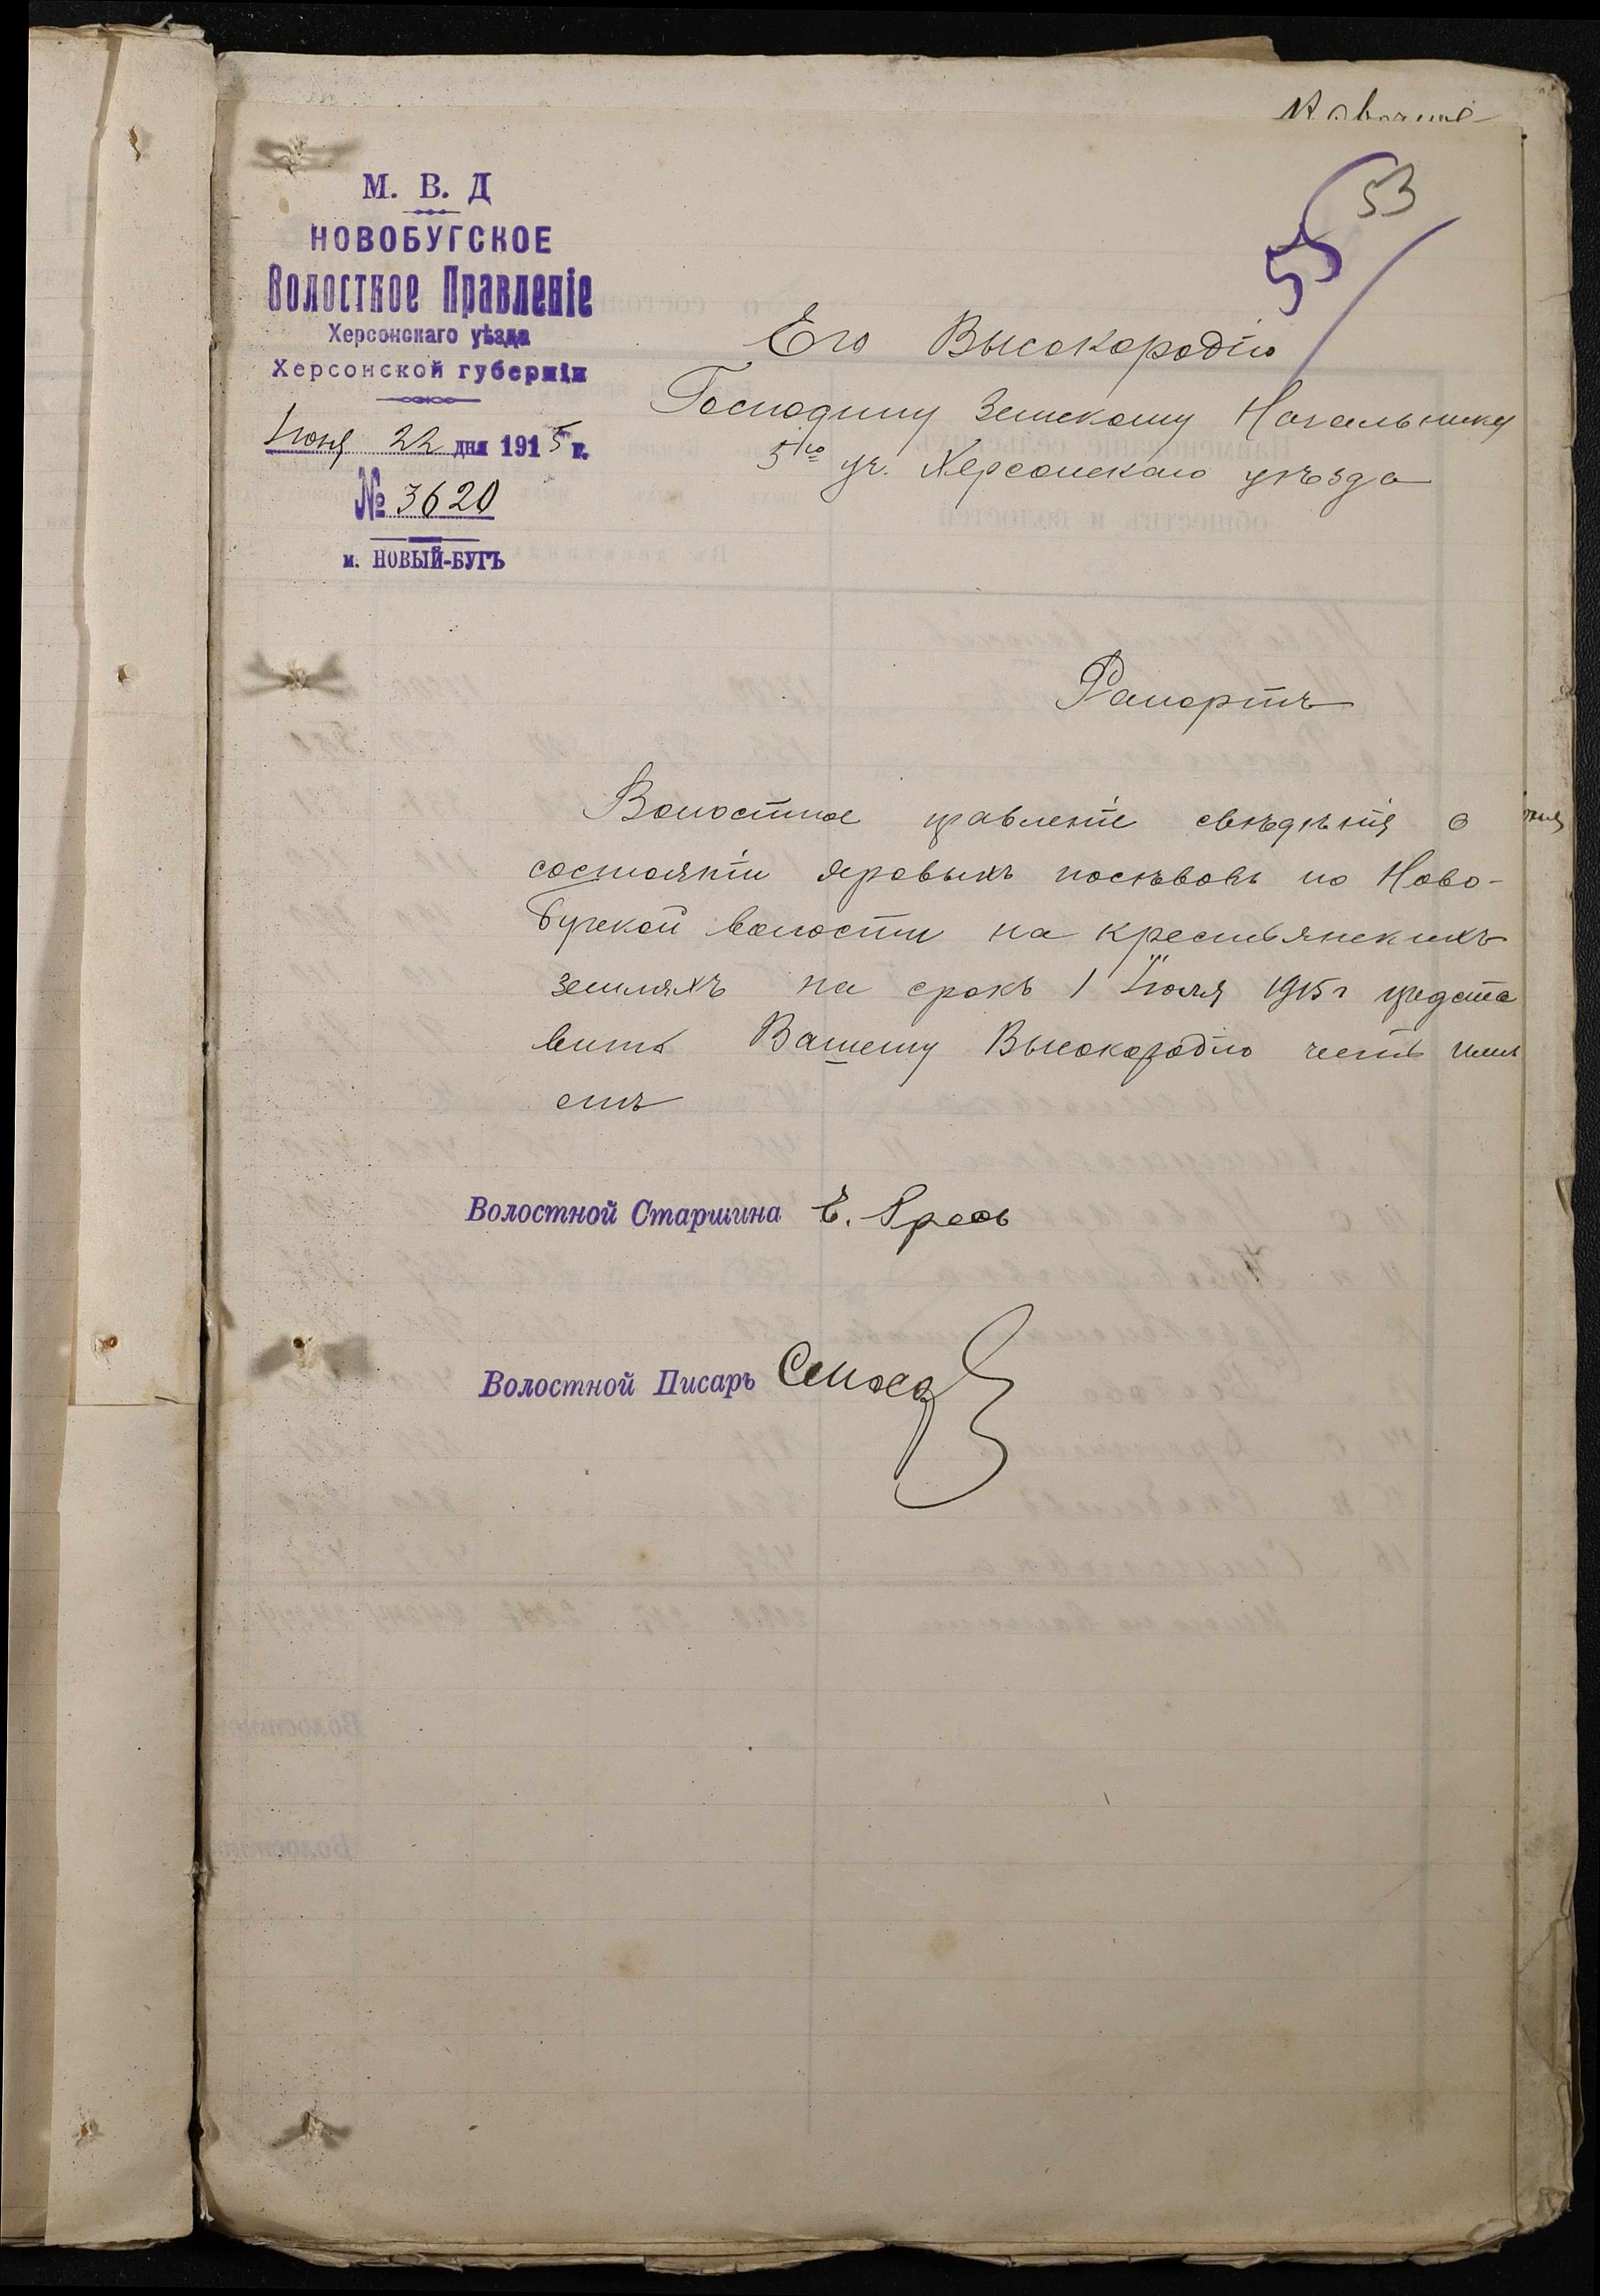 53
55
М. В. Д
НОВОБУГСКОЕ
Волостное Правленіе
Херсонскаго уѣзда
Херсонской губерніи
Іюня 22 дня 1915 г.
№ 3620
м. НОВЫЙ-БУГЪ
Его Высокородію
Господину Земскому Начальнику
5го уч. Херсонскаго уѣзда
Рапортъ
Волостное правленіе свѣдѣнія о
состояніи яровыхъ посѣвовъ по Ново-
бугской волости на крестьянскихъ
земляхъ на срокъ 1 Іюля 1915 г предста
вить Вашему Высокородію честь имѣ
етъ
Волостной Старшина
Волостной Писарь